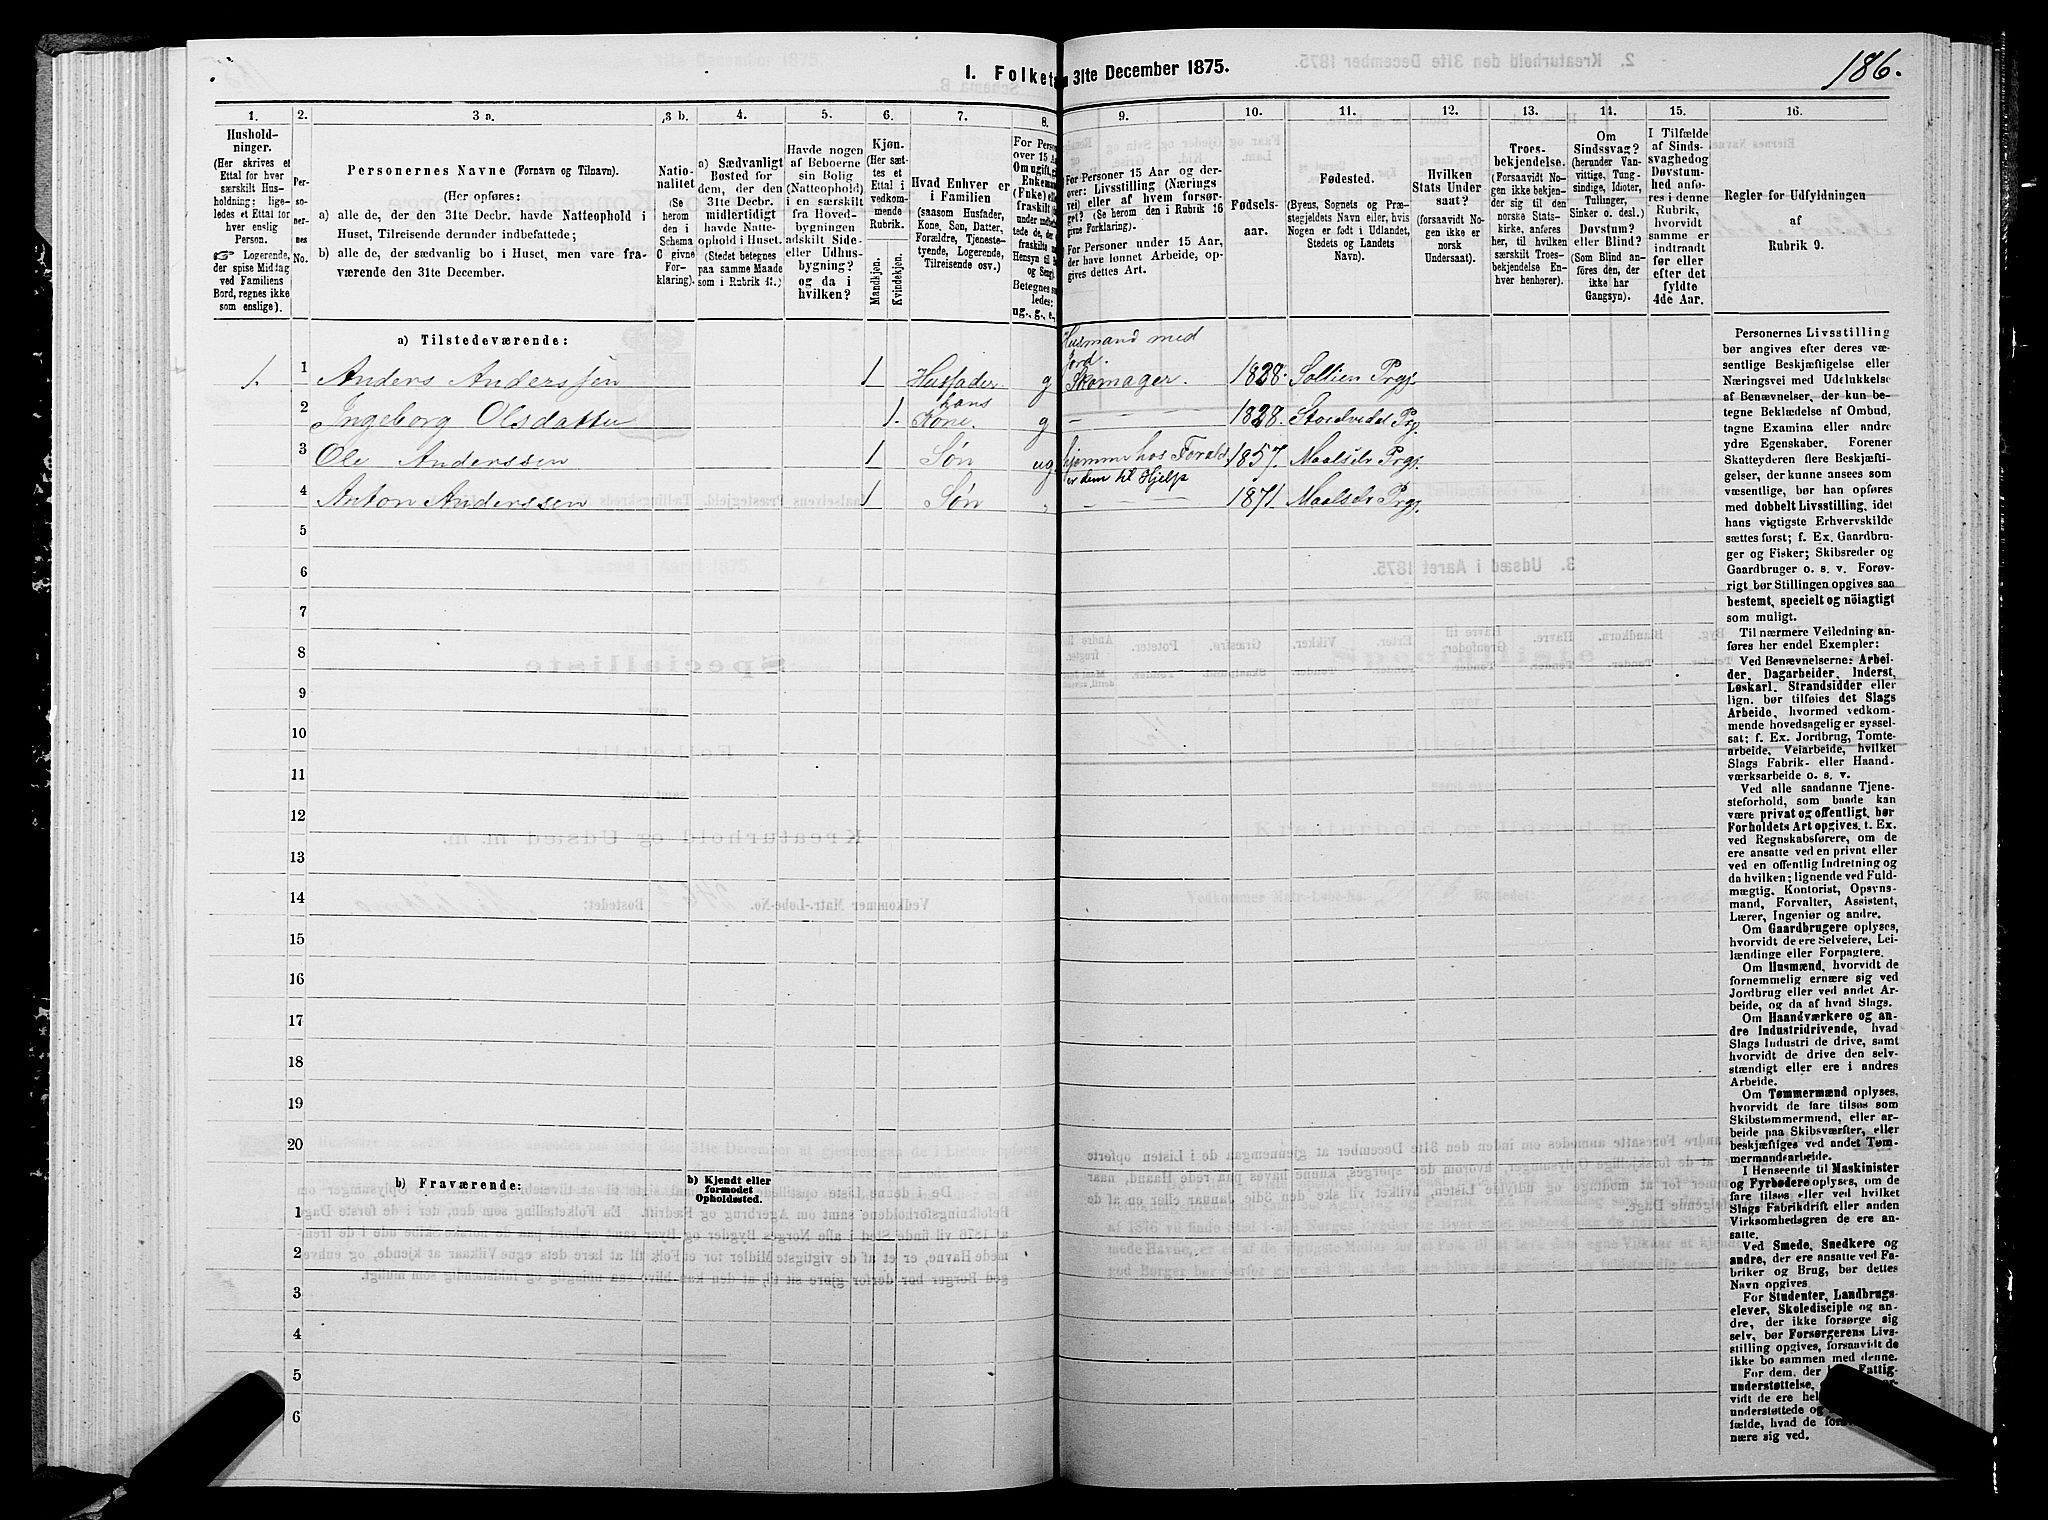 186.
I. Folket
31te December 1875.
1. 2. 3 a. 3 b. 4. 5. 6. 7. 8. 9. 10. 11. 12. 13. 14. 15. 16.
Hushold-
ninger.
(Her skrives et
Ettal for hver
særskilt Hus-
holdning; lige-
ledes et Ettal for
hver enslig
Person.
☞ Logerende,
der spise Middag
ved Familiens
Bord, regnes ikke
som enslige).
Per-
so-
ner-
nes
No.
Personernes Navne (Fornavn og Tilnavn).
(Her opføres:
a) alle de, der den 31te Decbr. havde Natteophold i
Huset, Tilreisende derunder indbefattede;
b) alle de, der sædvanlig bo i Huset, men vare fra-
værende den 31te December.
Natio-
nalitet
(Se
herom
den i
Schema
C givne
For-
klaring).
a) Sædvanligt
Bosted for
dem, der den
31te Decbr.
midlertidigt
havde Natte-
ophold i Huset.
(Stedet betegnes
paa samme Maade
som i Rubrik 11.)
Havde nogen
af Beboerne
sin Bolig
(Natteophold)
i en særskilt
fra Hoved-
bygningen
adskilt Side-
eller Udhus-
bygning?
og da i
hvilken?
Kjøn.
(Her sæt-
tes et
Ettal i
vedkom-
mende
Rubrik.
Mandkjøn.
Kvindekjøn.
Hvad Enhver er
i Familien
(saasom Husfader,
Kone, Søn, Datter,
Forældre, Tjeneste-
tyende, Logerende,
Tilreisende osv.)
For Person
over 15 Aa
Om ugift, g
Enkema
(Enke) e
fraskilt
Betegnes s
ledes:
ug., g., e.,
For Personer 15 Aar og der-
over: Livsstilling (Nærings
vei) eller af hvem forsør-
get? (Se herom den i Rubrik 16
givne Forklaring).
For Personer under 15 Aar,
der have lønnet Arbeide, op-
gives dettes Art.
Fødsels-
aar.
Fødested.
(Byens, Sognets og Præ-
stegjeldets Navn eller, hvis
Nogen er født i Udlandet,
Stedets og Landets
Navn).
Hvilken
Stats Under
saat?
(forsaavidt No-
gen ikke er
norsk
Undersaat).
Troes-
bekjendelse.
(Forsaavidt No-
gen ikke bekjen-
der sig til den
norske Stats-
kirke, anføres
her, til hvilken
særskilt Troes-
bekjendelse En-
hver henhører).
Om
Sindssvag?
(herunder Van-
vittige, Tung-
sindige, Idioter,
Tullinger,
Sinker o. desl.)
Døvstum?
eller Blind?
(Som Blind an-
føres den, der
ikke har
Gangsyn).
I Tilfælde
af Sinds-
svaghedog
Døvstum-
hed anfø-
res i denne
Rubrik,
hvorvidt
samme er
indtraadt
før eller
efter det
fyldte
4de Aar.
Regler for Udfyldningen
af
Rubrik 9.
a) Tilstedeværende:
Husmand med
Jord.
1. 1 Anders Anderssen 1 Husfader g Skomager. 1828. Sollien Prgj.
2 Ingeborg Olsdatter 1. hans Kone. g 1828. Prgj.
3 Ole Anderssen 1 Søn ug. hjemme hos Foræld. 1857. Maalselv Prgj.
er dem til Hjelp
4 Anton Anderssen 1 Søn 1871. Maalselv Prgj.
5
6
7
8
9
10
11
12
13
14
15
16
17
18
19
20
b) Fraværende:
b) Kjendt eller
formodet
Opholdssted.
1
2
3
4
5
6
Personernes Livsstilling
bør angives efter deres væ-
sentlige Beskjæftigelse eller
Næringsvei med Udelukkelse
af Benævnelser, der kun be-
tegne Beklædelse af Ombud,
tagne Examina eller andre
ydre Egenskaber. Forener
Skatteyderen flere Beskjæfti-
gelser, der kunne ansees som
væsentlige, bør han opføres
med dobbelt Livsstilling, idet
hans vigtigste Erhvervskilde
sættes først; f. Ex. Gaardbru-
ger og Fisker; Skibsreder og
Gaardbruger o. s. v. Forøv-
rigt bør Stillingen opgives saa
bestemt, specielt og nöiagtigt
som muligt.
Til nærmere Veiledning an-
føres her endel Exempler:
Ved Benævnelserne: Arbei-
der, Dagarbeider, Inderst,
Løskarl, Strandsidder eller
lign. bør tilføies det Slags
Arbeide, hvormed vedkom-
mende hovedsagelig er syssel-
sat; f. Ex. Jordbrug, Tomte-
arbeide, Veiarbeide, hvilket
Slags Fabrik- eller Haand-
værksarbeide o. s. v.
Ved alle saadanne Tjene-
steforhold, som baade kan
være privat og offentligt, bør
Forholdets Art opgives, t. Ex.
ved Regnskabsførere, om de
ere ansatte ved en privat eller
ved en offentlig Indretning og
da hvilken; lignende ved Fuld-
mægtig, Kontorist, Opsyns-
mand, Forvalter, Assistent,
Lærer, Ingeniør og andre.
Om Gaardbrugere oplyses,
hvorvidt de ere Selveiere, Lei-
lændinge eller Forpagtere.
Om Husmænd, hvorvidt de
fornemmelig ernære sig ved
Jordbrug eller ved andet Ar-
beide, og da af hvad Slags.
Om Haandværkere og an-
dre Industridrivende, hvad
Slags Industri de drive, samt
hvorvidt de drive den selv-
stændigt eller ere i andres
Arbeide.
Om Tømmermænd oplyses,
hvorvidt de fare tilsøs som
Skibstømmermænd, eller ar-
beide paa Skibsværfter, eller
beskjæftiges ved andet Tøm-
mermandsarbeide.
I Henseende til Maskinister
og Fyrbødere oplyses, om de
fare tilsøs eller ved hvilket
Slags Fabrikdrift eller anden
Virksomhedsgren de ere an-
satte.
Ved Smede, Snedkere og
andre, der ere ansatte ved Fa-
briker og Brug, bør dettes
Navn opgives.
For Studenter, Landbrugs-
elever, Skoledisciple og an-
dre, der ikke forsørge sig
selv, bør Forsørgerens Livs-
stilling opgives, forsaavidt de
ikke bo sammen med denne.
For dem, der
Fattig-
understøttelse,
vidt de ere
understøttede og
fælde, hvad de
nære sig ved.